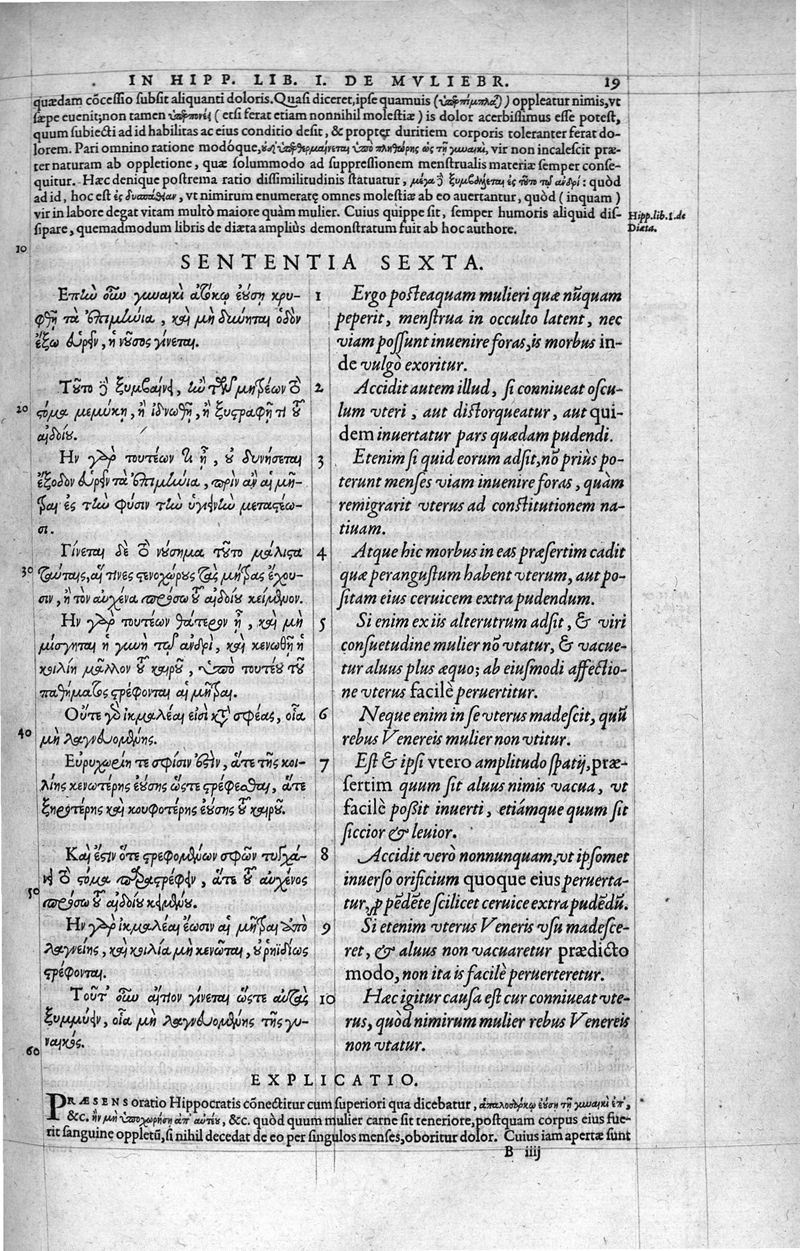 IN HIPP. LIB. I. DE MVLIEBR. 19
quædam cõcessio subsit aliquanti doloris. Quasi diceret, ipse quamuis () oppleatur nimis, vt
sæpe euenit; non tamen (etsi ferat etiam nonnihil molestiæ) is dolor acerbissimus esse potest,
quum subiecti ad id habilitas ac eius conditio desit, & propter duritiem corporis toleranter ferat do-
lorem. Pari omnino ratione modóque, vir non incalescit præ-
ter naturam ab oppletione, quæ solummodo ad suppressionem menstrualis materiæ semper conse-
quitur. Hæc denique postrema ratio dissimilitudinis statuatur, : quòd
ad id, hoc est , vt nimirum enumeratę omnes molestiæ ab eo auertantur, quòd (inquam)
vir in labore degat vitam multò maiore quàm mulier. Cuius quippe sit, semper humoris aliquid dis-
sipare, quemadmodum libris de diæta ampliùs demonstratum fuit ab hoc authore.
Hipp. lib. I. de
Diæta.
10
SENTENTIA SEXTA.
Ἐπὴν οὖν γυναικὶ ἀτόκῳ ἐούσῃ κρυ-
φθῇ τὰ ἐπιμήνια, καὶ μὴ δύνηται ὁδὸν
ἔξω εὑρεῖν, ἡ νοῦσος γίνεται.
Τοῦτο δὲ ξυμβαίνει, ἢν τῶν μητρέων τὸ
20 στόμα μεμύκῃ, ἢ ἰδνωθῇ, ἢ ξυστραφῇ τι τοῦ
αἰδοίου.
Ἢν γὰρ τουτέων τι ᾖ, οὐ δυνήσεται
ἔξοδον εὑρεῖν τὰ ἐπιμήνια, πρὶν ἂν αἱ μῆ-
τραι ἐς τὴν φύσιν τὴν ὑγιεινὴν μεταστέω-
σι.
Γίνεται δὲ τὸ νούσημα τοῦτο μάλιστα
30 ταύταις, αἵ τινες στενοχώρους τὰς μήτρας ἔχου-
σιν, ἢ τὸν αὐχένα πρόσω τοῦ αἰδοίου κείμενον.
Ἢν γὰρ τουτέων θάτερον ᾖ, καὶ μὴ
μίσγηται ἡ γυνὴ τῷ ἀνδρὶ, καὶ κενωθῇ ἡ
κοιλίη μᾶλλον τοῦ καιροῦ, ὑπὸ τουτέου τοῦ
παθήματος στρέφονται αἱ μῆτραι.
Οὔτε γὰρ ἰκμαλέαι εἰσὶ κατὰ σφέας, οἷα
40 μὴ λαγνευομένης.
Εὐρυχωρίη τε σφίσιν ἐστὶν, ἅτε τῆς κοι-
λίης κενωτέρης ἐούσης ὥστε στρέφεσθαι, ἅτε
ξηροτέρης καὶ κουφοτέρης ἐούσης τοῦ καιροῦ.
Καὶ ἔστιν ὅτε στρεφομένων σφῶν τυγχά-
νει τὸ στόμα παραστρέφειν, ἅτε τοῦ αὐχένος
50 πρόσω τοῦ αἰδοίου κειμένου.
Ἢν γὰρ ἰκμαλέαι ἔωσιν αἱ μῆτραι ἀπὸ
λαγνείης, καὶ κοιλία μὴ κενῶται, οὐ ῥηϊδίως
στρέφονται.
Τοῦτ' οὖν αἴτιον γίνεται ὥστε αὐτὰς
ξυμμύειν, οἷα μὴ λαγνευομένης τῆς γυ-
60 ναικός.
1 Ergo posteaquam mulieri quæ nũquam
peperit, menstrua in occulto latent, nec
viam possunt inuenire foras, is morbus in-
de vulgò exoritur.
2 Accidit autem illud, si conniueat oscu-
lum vteri, aut distorqueatur, aut qui-
dem inuertatur pars quædam pudendi.
3 Etenim si quid eorum adsit, nõ priùs po-
terunt menses viam inuenire foras, quàm
remigrarit vterus ad constitutionem na-
tiuam.
4 Atque hic morbus in eas præsertim cadit
quæ perangustum habent vterum, aut po-
sitam eius ceruicem extra pudendum.
5 Si enim ex iis alterutrum adsit, & viri
consuetudine mulier nõ vtatur, & vacue-
tur aluus plus æquo; ab eiusmodi affectio-
ne vterus facilè peruertitur.
6 Neque enim in se vterus madescit, quũ
rebus Venereis mulier non vtitur.
7 Est & ipsi vtero amplitudo spatij, præ-
sertim quum sit aluus nimis vacua, vt
facilè possit inuerti, etiámque quum sit
siccior & leuior.
8 Accidit verò nonnunquam, vt ipsomet
inuerso orificium quoque eius peruerta-
tur, ꝓpẽdẽte scilicet ceruice extra pudẽdũ.
9 Si etenim vterus Veneris vsu madesce-
ret, & aluus non vacuaretur prædicto
modo, non ita is facilè peruerteretur.
10 Hæc igitur causa est cur conniueat vte-
rus, quòd nimirum mulier rebus Venereis
non vtatur.
EXPLICATIO.
PRÆSENS oratio Hippocratis cõnectitur cum superiori qua dicebatur,
&c. , &c. quòd quum mulier carne sit teneriore, postquam corpus eius fue-
rit sanguine oppletũ, si nihil decedat de eo per singulos menses, oboritur dolor. Cuius iam apertæ sunt
B iiij